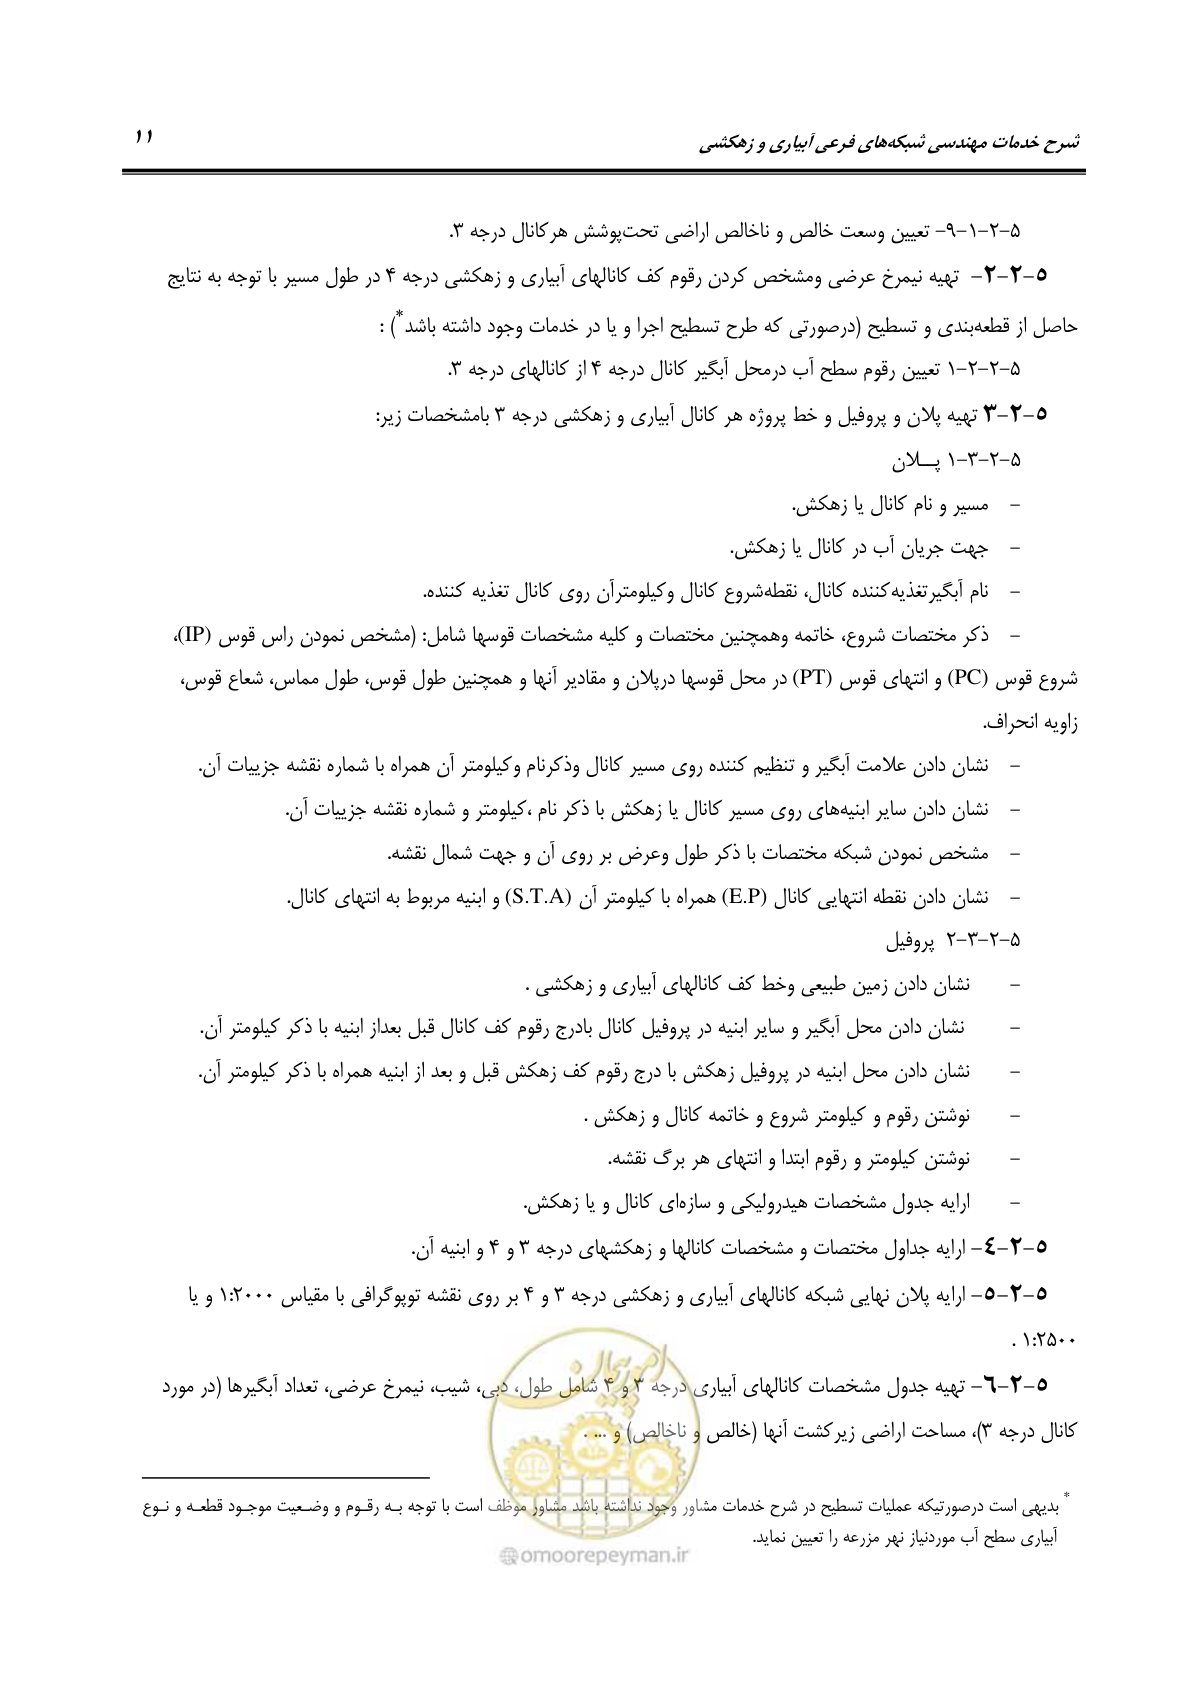 شرح خدمات مهندسی شبکه‌های فرعی آبیاری و زهکشی
۱۱
۵-۲-۱-۹- تعیین وسعت خالص و ناخالص اراضی تحت‌پوشش هرکانال درجه ۳.
۵-۲-۲- تهیه نیمرخ عرضی ومشخص کردن رقوم کف کانالهای آبیاری و زهکشی درجه ۴ در طول مسیر با توجه به نتایج
حاصل از قطعه‌بندی و تسطیح (درصورتی که طرح تسطیح اجرا و یا در خدمات وجود داشته باشد*) :
۵-۲-۲-۱ تعیین رقوم سطح آب درمحل آبگیر کانال درجه ۴ از کانالهای درجه ۳.
۵-۲-۳ تهیه پلان و پروفیل و خط پروژه هر کانال آبیاری و زهکشی درجه ۳ بامشخصات زیر:
۵-۲-۳-۱ پــلان
- مسیر و نام کانال یا زهکش.
- جهت جریان آب در کانال یا زهکش.
- نام آبگیرتغذیه‌کننده کانال، نقطه‌شروع کانال وکیلومترآن روی کانال تغذیه کننده.
- ذکر مختصات شروع، خاتمه وهمچنین مختصات و کلیه مشخصات قوسها شامل: (مشخص نمودن راس قوس (IP)،
شروع قوس (PC) و انتهای قوس (PT) در محل قوسها درپلان و مقادیر آنها و همچنین طول قوس، طول مماس، شعاع قوس،
زاویه انحراف.
- نشان دادن علامت آبگیر و تنظیم کننده روی مسیر کانال وذکرنام وکیلومتر آن همراه با شماره نقشه جزییات آن.
- نشان دادن سایر ابنیه‌های روی مسیر کانال یا زهکش با ذکر نام ،کیلومتر و شماره نقشه جزییات آن.
- مشخص نمودن شبکه مختصات با ذکر طول وعرض بر روی آن و جهت شمال نقشه.
- نشان دادن نقطه انتهایی کانال (E.P) همراه با کیلومتر آن (S.T.A) و ابنیه مربوط به انتهای کانال.
۵-۲-۳-۲ پروفیل
- نشان دادن زمین طبیعی وخط کف کانالهای آبیاری و زهکشی .
- نشان دادن محل آبگیر و سایر ابنیه در پروفیل کانال بادرج رقوم کف کانال قبل بعداز ابنیه با ذکر کیلومتر آن.
- نشان دادن محل ابنیه در پروفیل زهکش با درج رقوم کف زهکش قبل و بعد از ابنیه همراه با ذکر کیلومتر آن.
- نوشتن رقوم و کیلومتر شروع و خاتمه کانال و زهکش .
- نوشتن کیلومتر و رقوم ابتدا و انتهای هر برگ نقشه.
- ارایه جدول مشخصات هیدرولیکی و سازه‌ای کانال و یا زهکش.
۵-۲-۴- ارایه جداول مختصات و مشخصات کانالها و زهکشهای درجه ۳ و ۴ و ابنیه آن.
۵-۲-۵- ارایه پلان نهایی شبکه کانالهای آبیاری و زهکشی درجه ۳ و ۴ بر روی نقشه توپوگرافی با مقیاس ۱:۲۰۰۰ و یا
۱:۲۵۰۰ .
۵-۲-۶- تهیه جدول مشخصات کانالهای آبیاری درجه ۳ و ۴ شامل طول، دبی، شیب، نیمرخ عرضی، تعداد آبگیرها (در مورد
کانال درجه ۳)، مساحت اراضی زیرکشت آنها (خالص و ناخالص) و ... .
* بدیهی است درصورتیکه عملیات تسطیح در شرح خدمات مشاور وجود نداشته باشد مشاور موظف است با توجه بـه رقـوم و وضـعیت موجـود قطعـه و نـوع
آبیاری سطح آب موردنیاز نهر مزرعه را تعیین نماید.
امور پیمان
@omoorepeyman.ir